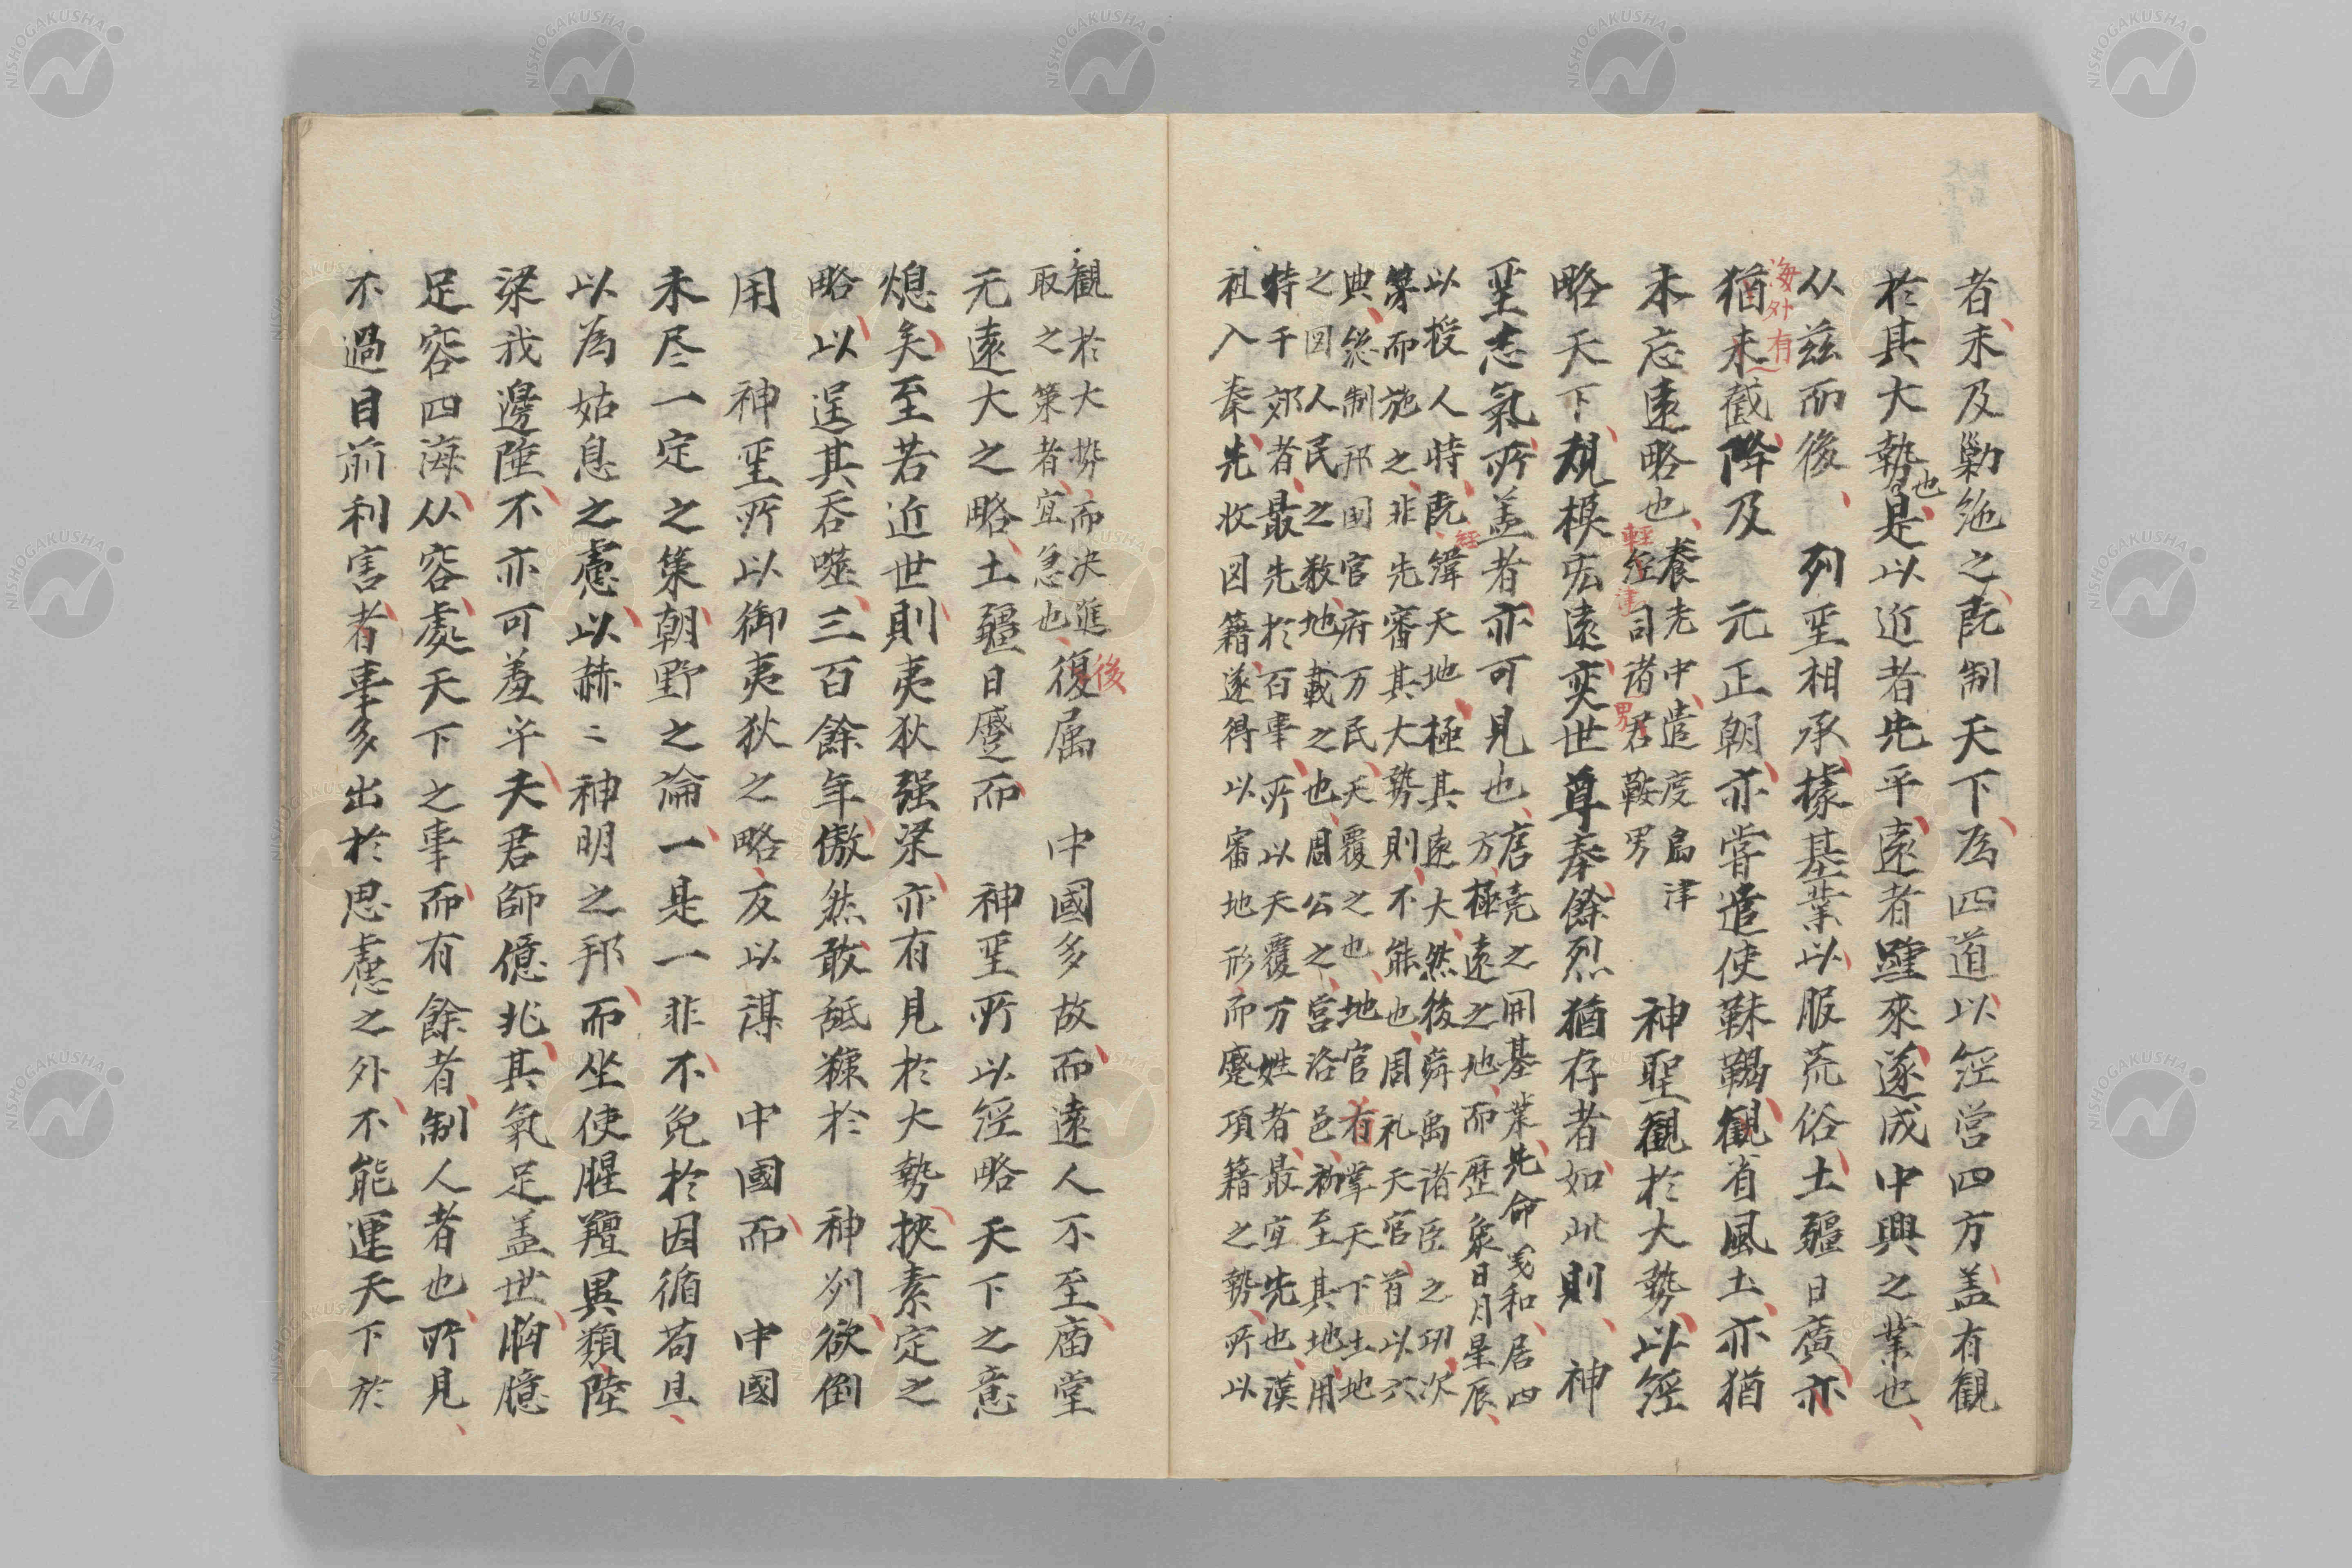 者未及勦絶之既制天下為四道以経営四方盖有観
於其大勢也是以近者先平遠者踵來遂成中興之業也
从茲而後列聖相承據基業以服荒俗土疆日廣亦
海外有
猶未截降及元正朝亦甞遣使靺鞨観省風土亦猶
未忘遠略也
養老中遣度島津
軽
津
経司諸君鞍男
男
神聖観於大勢以経
略天下規模宏遠奕世尊奉餘烈猶存者如此則神
聖志氣所盖者亦可見也
唐尭之開基業先命羲和居四
方極遠之地而歴象日月星辰
以授人時既緯天地極其遠大然後舜禹諸臣之功次
経
第而施之非先審其大勢則不能也周礼天官首以六
典総制邦国官府万民天覆之也地官有掌天下土地
之図人民之数地載之也周公之営洛邑初至其地用
特于郊者最先於百事所以天覆万姓者最宜先也漢
祖入秦先收図籍遂得以審地形而蹙項籍之勢所以
観於大勢而决進
取之策者宜急也
復属中國多故而遠人不至庙堂
後
无遠大之略土疆日蹙而神聖所以経略天下之意
熄矣至若近世則夷狄强梁亦有見於大勢挾素定之
略以逞其呑噬三百餘年傲然敢舐糠於神州欲倒
用神聖所以御夷狄之略反以謀中國而中國
未尽一定之策朝野之論一是一非不免於因循苟且
以為姑息之慮以赫〻神明之邦而坐使腥羶異類陸
梁我邊陲不亦可羞乎夫君師億兆其氣足盖世胸臆
足容四海从容處天下之事而有餘者制人者也所見
不過目前利害者事多出於思慮之外不能運天下於